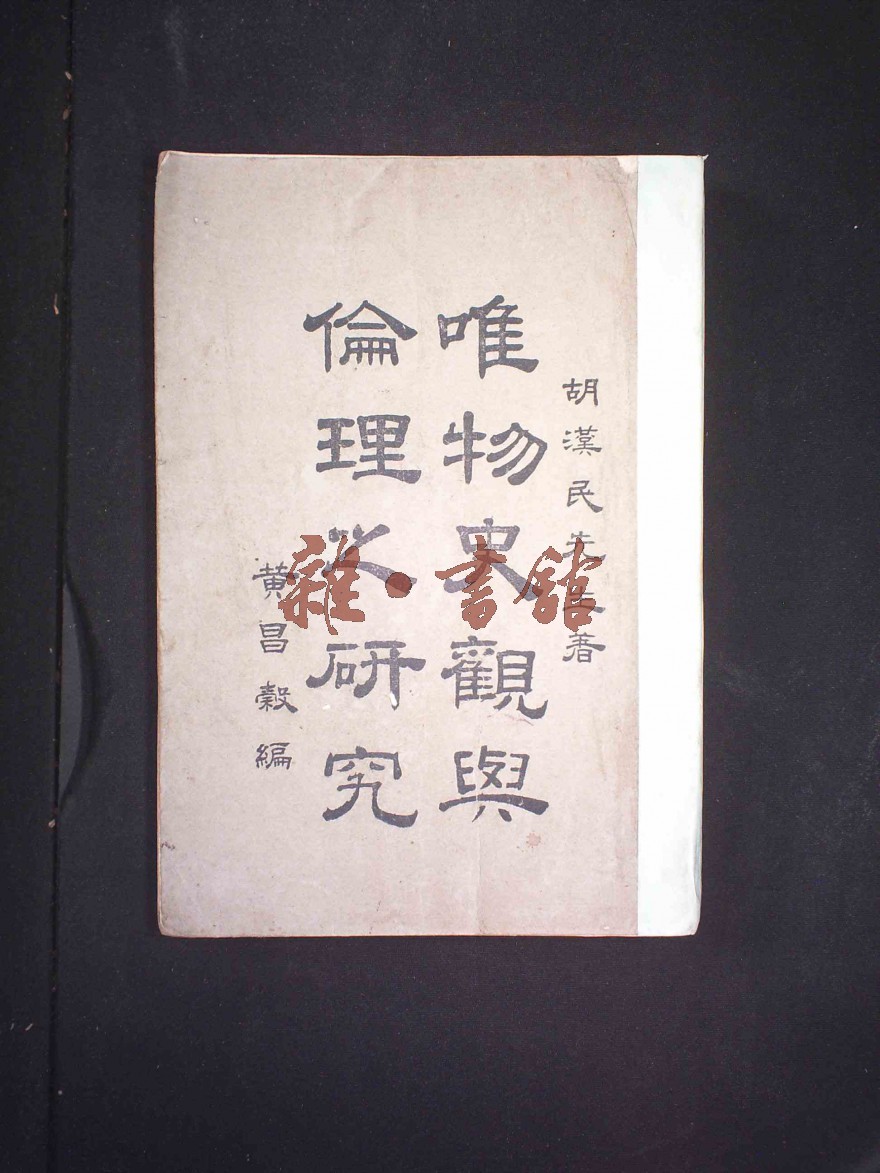 胡漢民先生著
唯物史觀與
倫理之研究
黄昌穀編
雜·書館